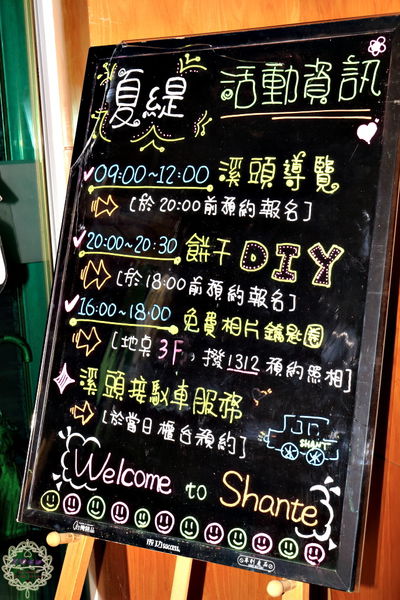 夏緹 活動資訊
09:00~12:00 溪頭導覽
[於 20:00前預約報名]
20:00~20:30 餅干 DIY
[於18:00前預約報名]
16:00~18:00 免費相片鑰匙圈
[地点 3F，撥1312 預約照相]
溪頭接駁車服務
[於當日櫃台預約]
SHANTE
Welcome to Shante
成功 success
專利產品